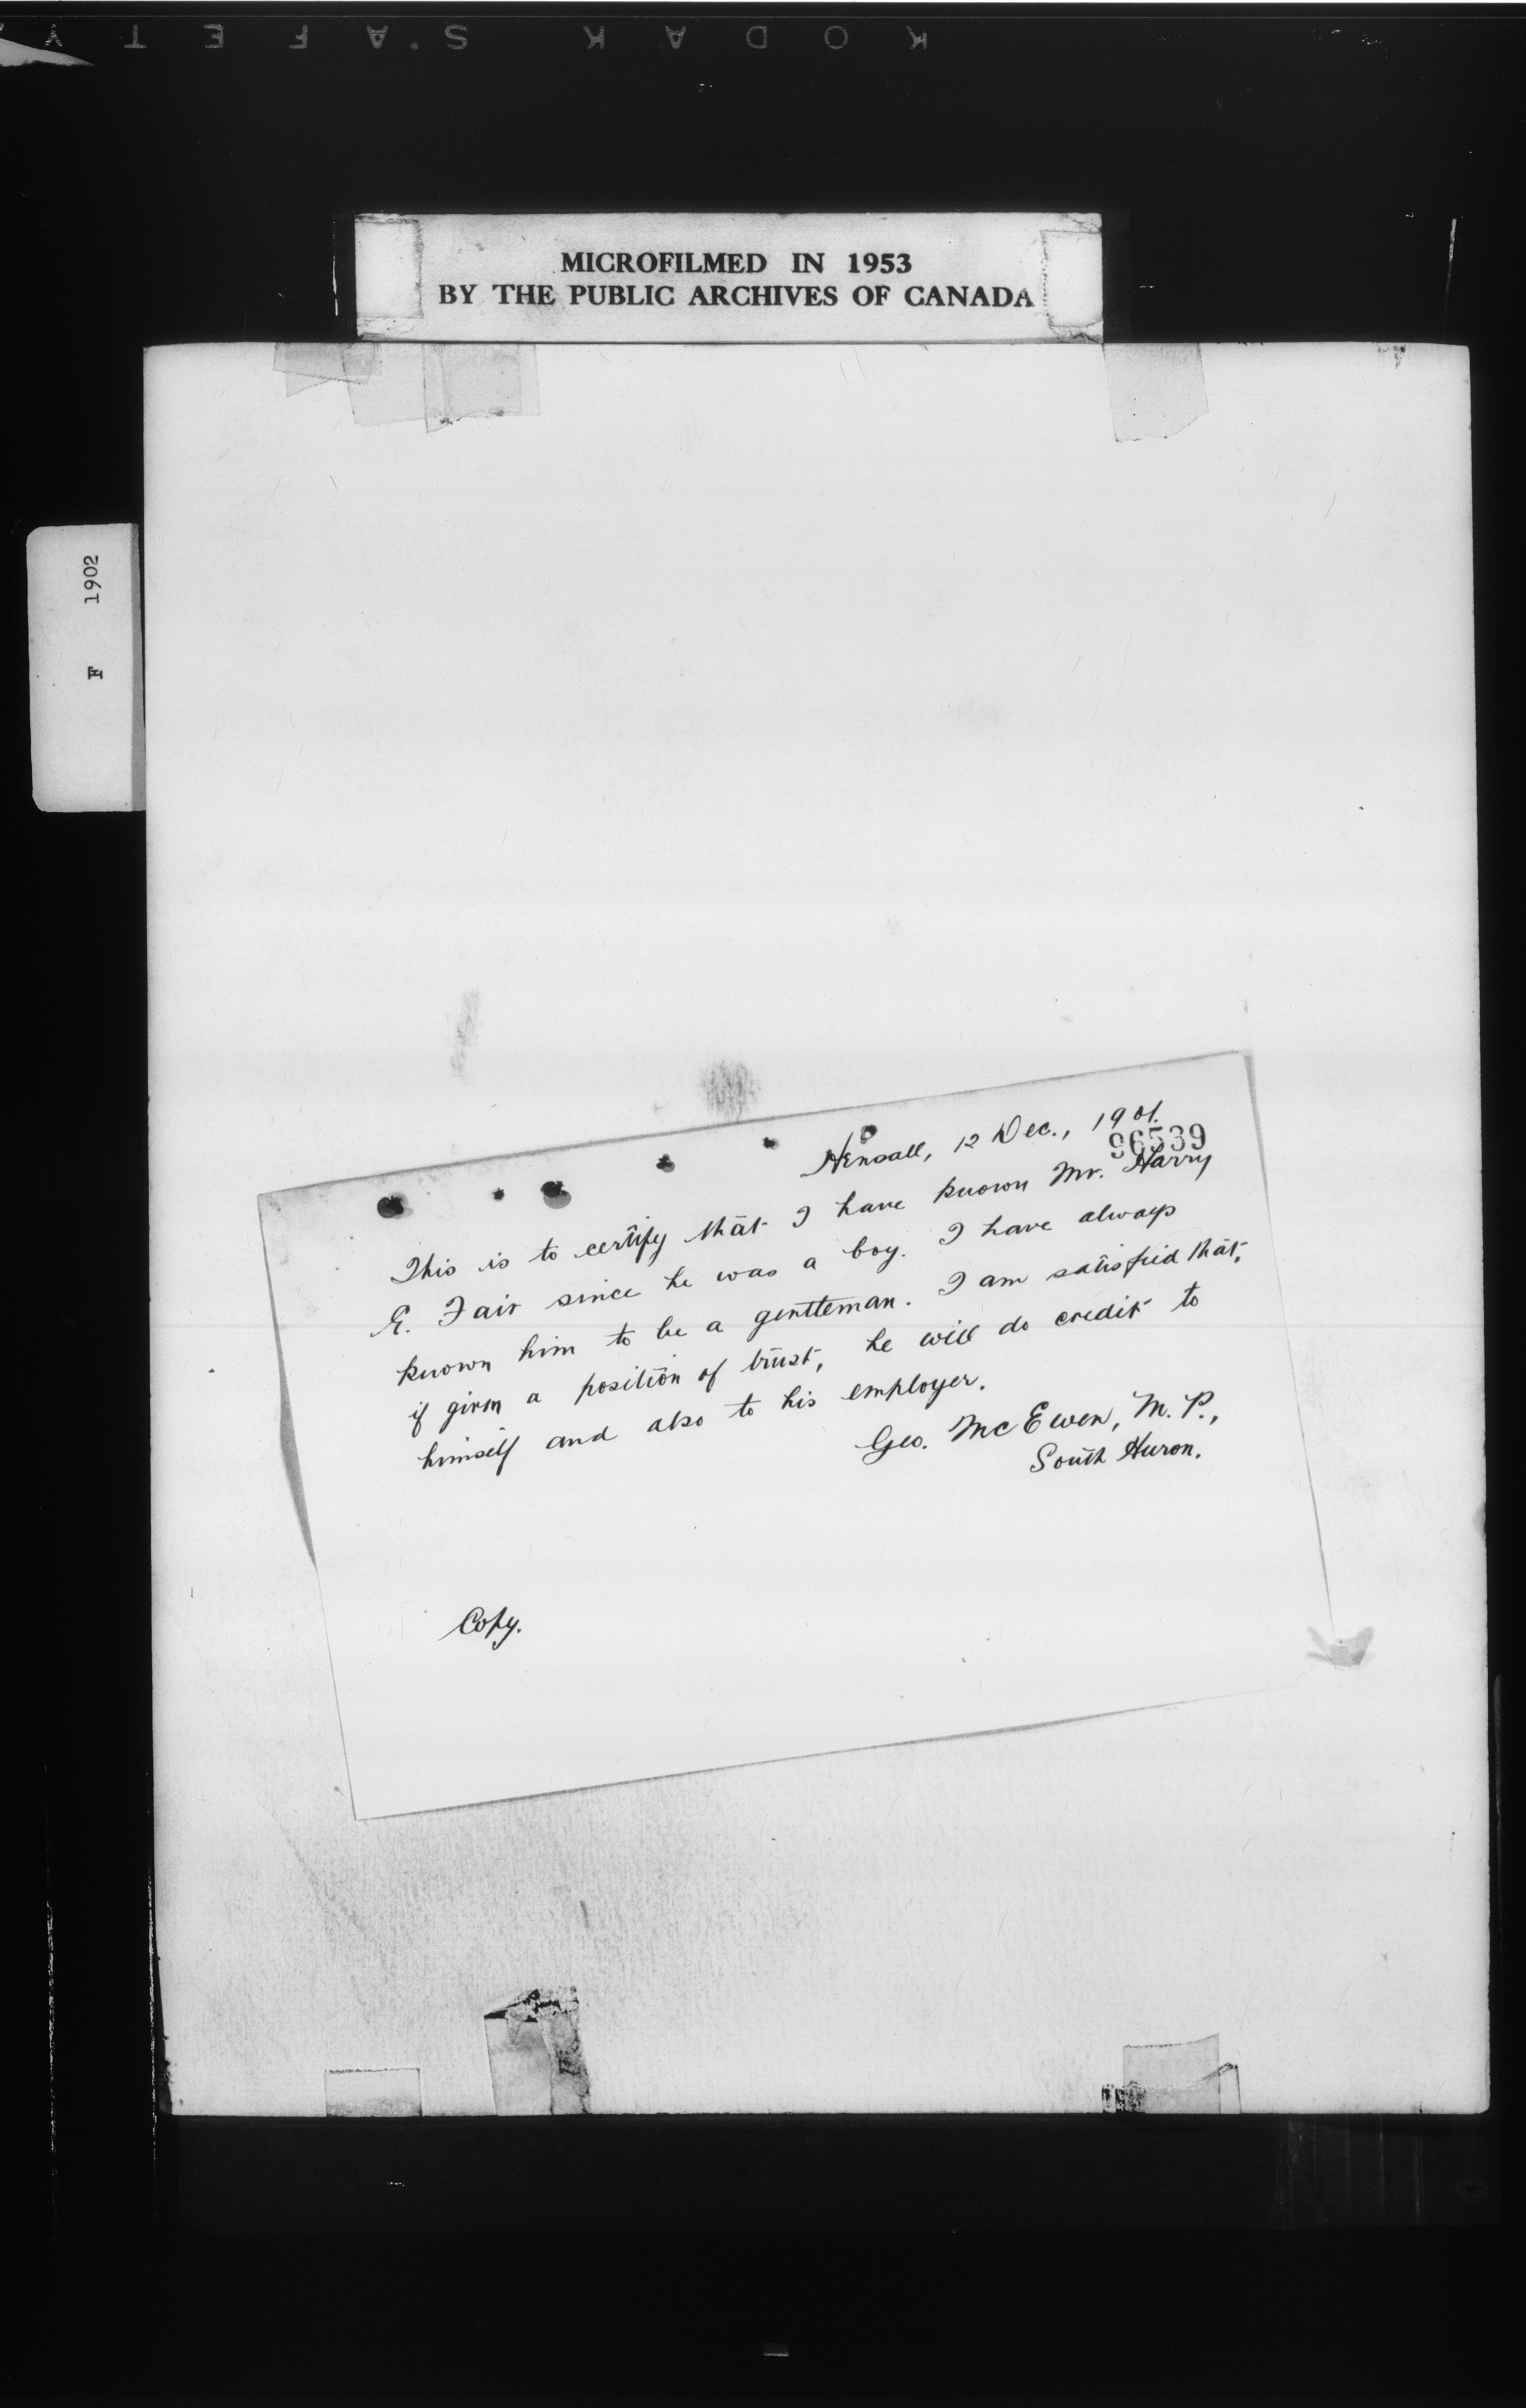 KODAK SAFETY
MICROFILMED IN 1953
BY THE PUBLIC ARCHIVES OF CANADA
F 1902
Hensall, 12 Dec., 1901.
96539
This is to certify that I have known Mr. Harry
E. Fair since he was a boy. I have always
known him to be a gentleman. I am satisfied that,
if given a position of trust, he will do credit to
himself and also to his employer.
Geo. McEwen, M. P.,
South Huron.
Copy.